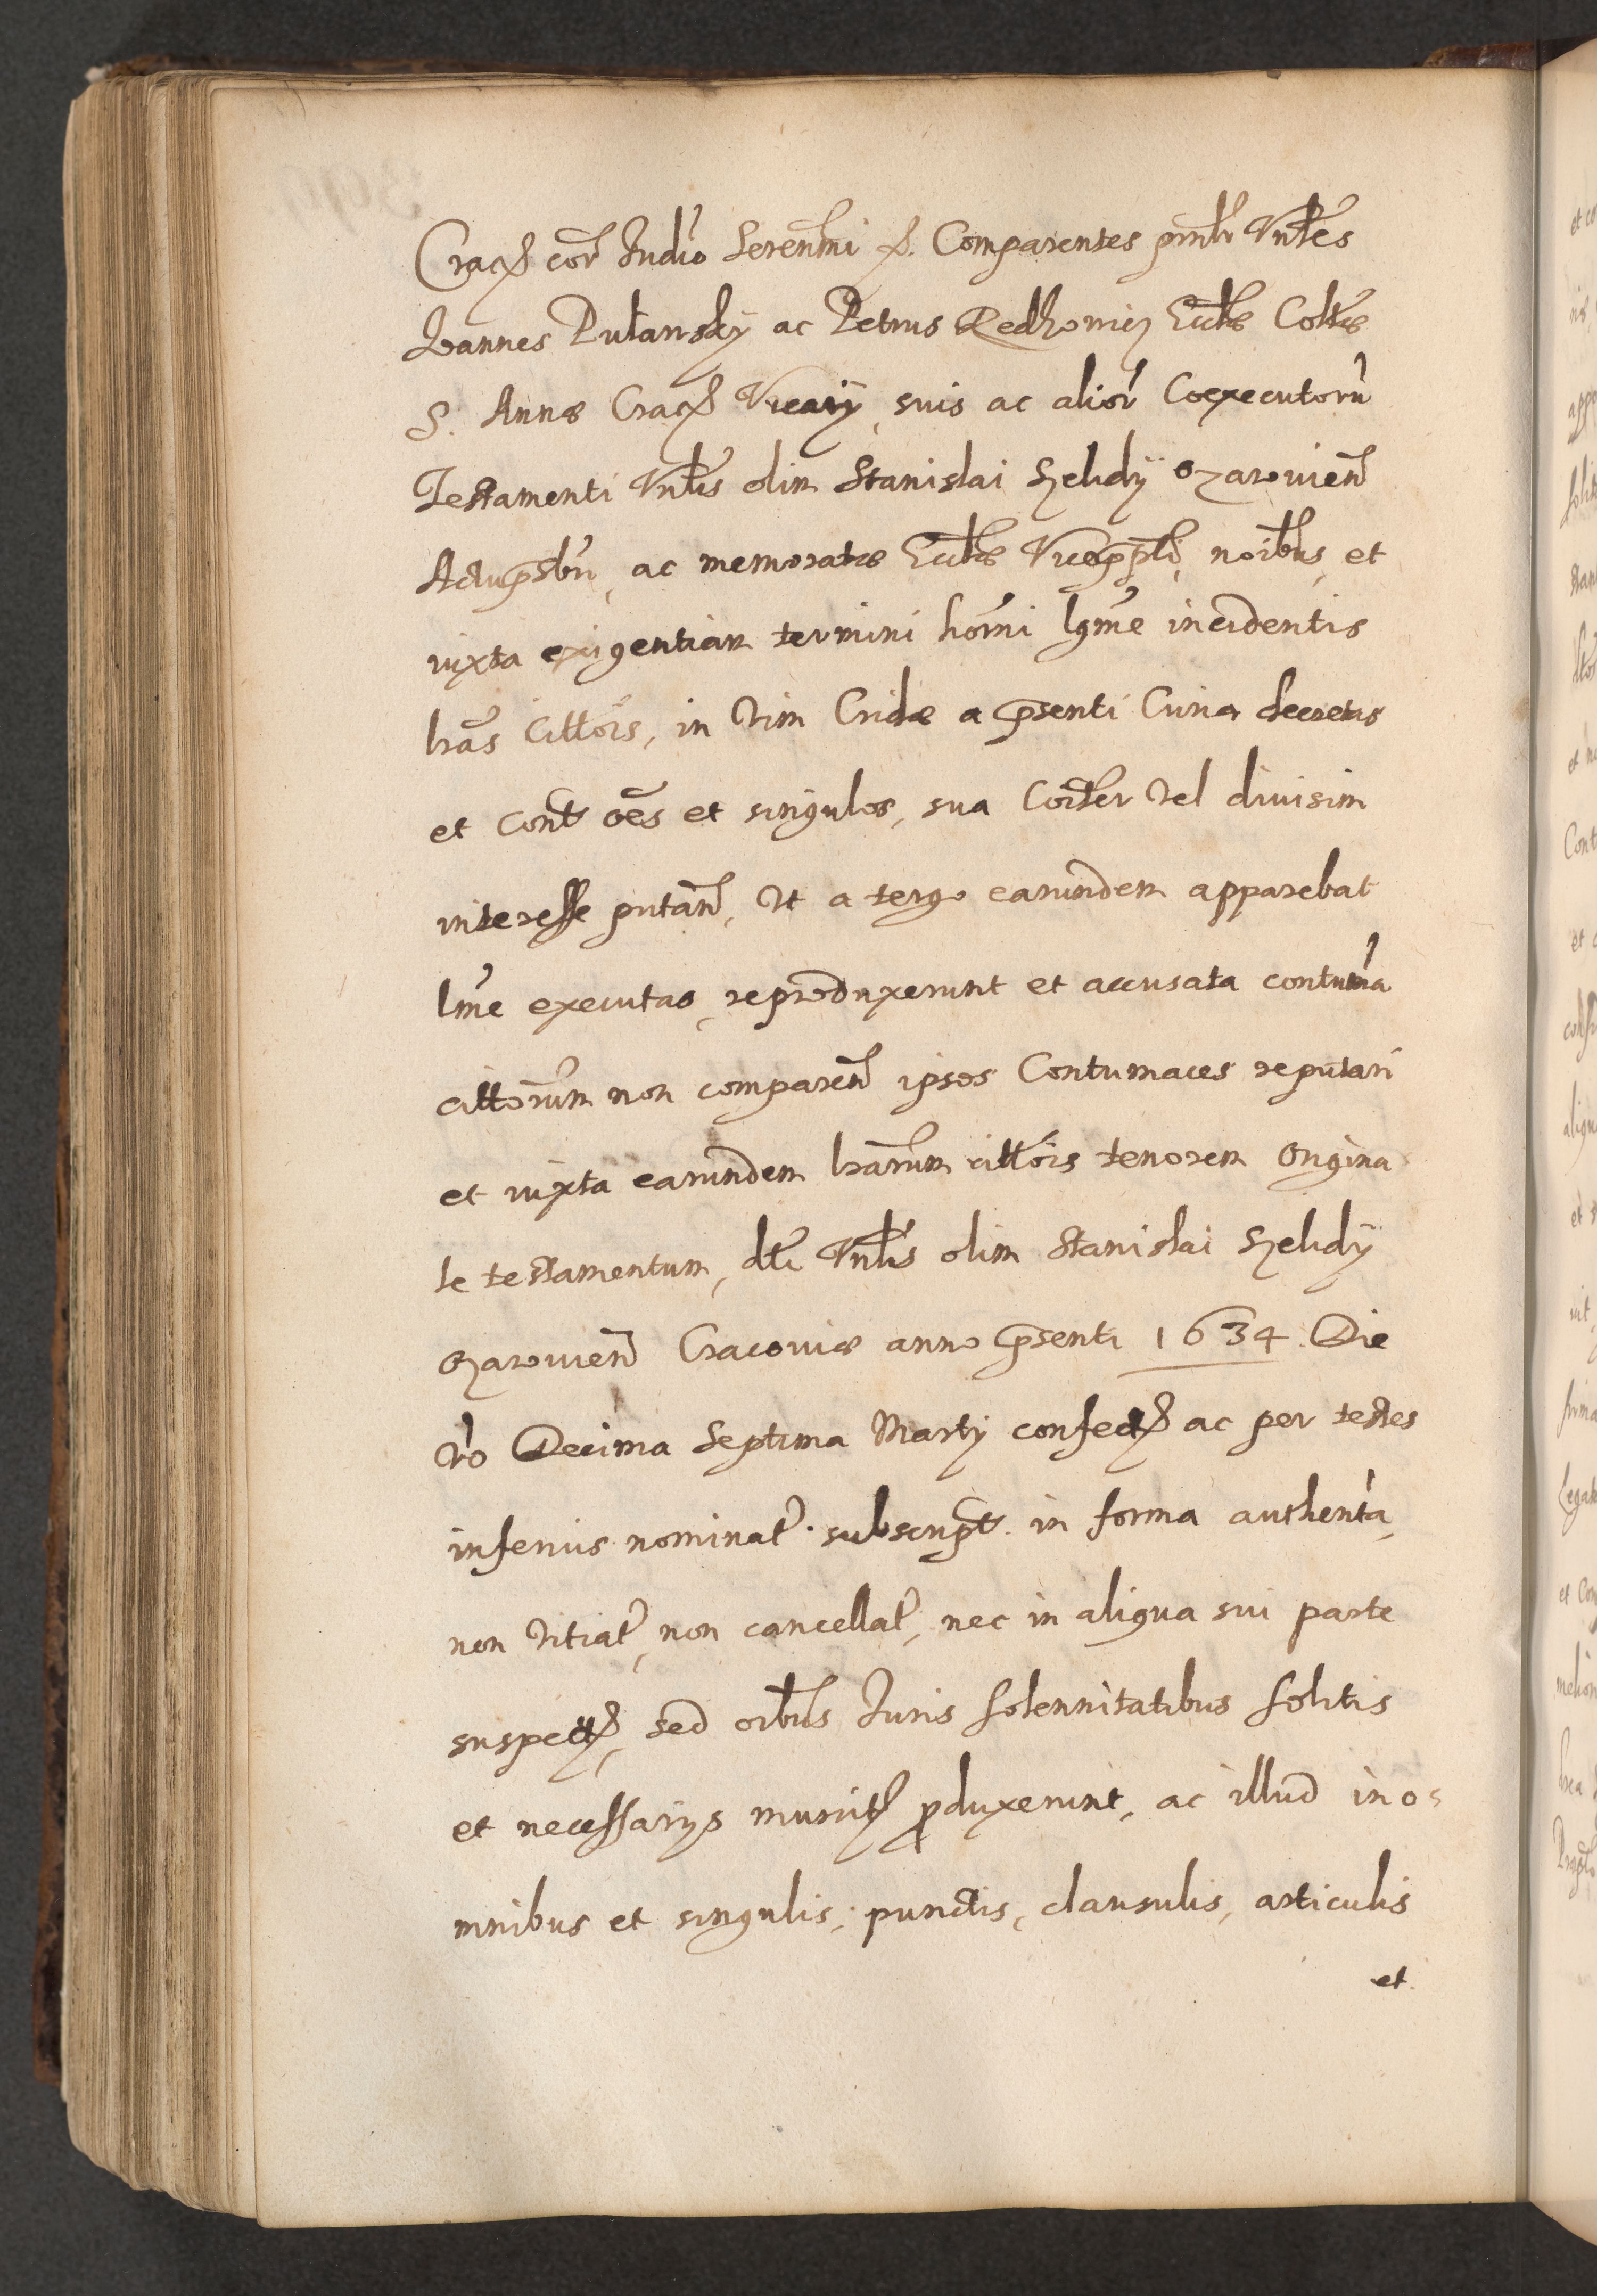 Crac͠s cor͠ Iudio Seren͠mi &. Comparentes pn͠tr Vn͠bles
Ioannes Pulansky ac Petrus Redzonicz Eccl͠æ Coll͠tæ
S. Annæ Crac͠s Vicarÿ, suis ac alior͠ Coexecutoru͠
Testamenti Vn͠blis olim Stanislai Szelidÿ Ozarouien͠
Archip͠sbri, ac memoratæ Eccl͠æ Vicep͠pti, noi͠bus, et
iuxta exigentiam termini hor͠ni lg͠me incidentis
lr͠as Citto͠is, in Vim Cridæ a p͠senti Curia decretas
et Cont͠ oe͠s et singulos, sua Coi͠ter Vel diuisim
interesse putan͠, Vt a tergo earundem apparebat
l͠me executas, reproduxerunt et accusata contuma͠
cittorum non comparen͠ ipsos Contumaces reputari
et iuxta earundem lr͠arum citto͠is tenorem Origina
le testamentum, dt͠i Vn͠blis olim Stanislai Szelidÿ
Ozarouien͠ Cracouiæ anno p͠senti 1634. Die
Vo͠ Decima Septima Martÿ confect͠ ac per testes
inferius nominat͠. subscript͠. in forma authenta͠,
non Vitiat͠, non cancellat͠, nec in aliqua sui parte
suspect͠, sed oi͠bus Iuris solennitatibus solitis
et necessarijs munit͠ produxerunt, ac illud in o=
mnibus et singulis, punctis, clausulis, articulis
et